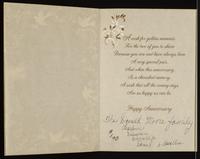 A wish for golden moments
For the two of you to share
Because you are and have always been
A very special pair,
And when this anniversary
Is a cherished memory
A wish that all the coming days
Are as happy as can be.
Happy Anniversary
The Donald Moore family